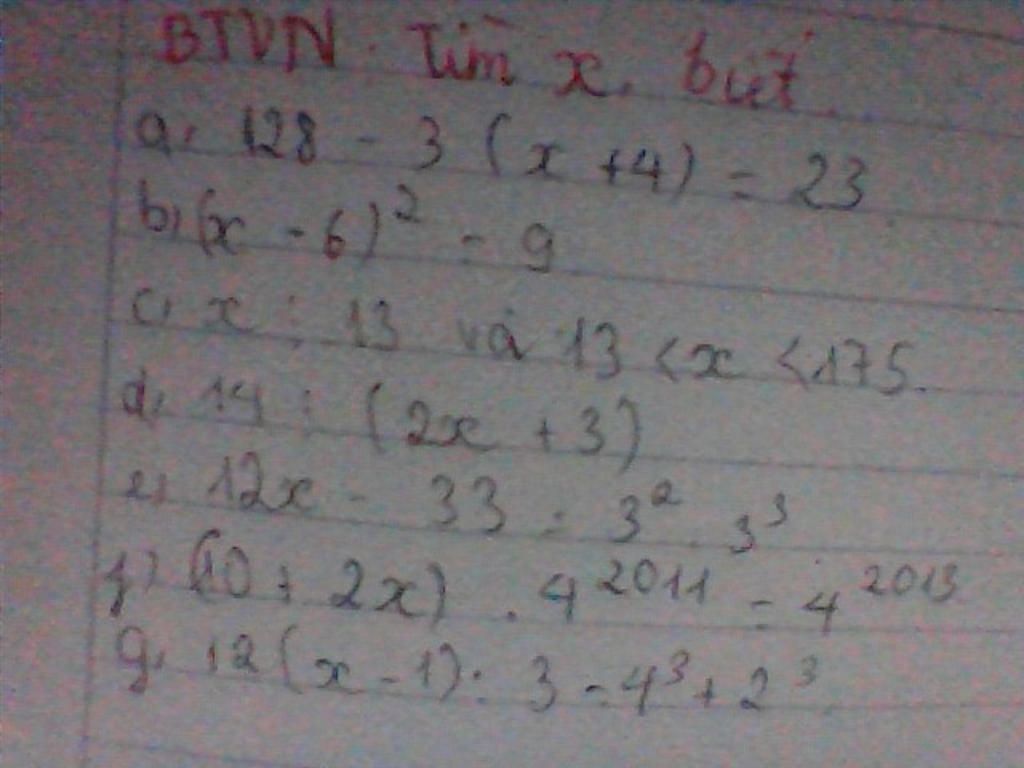 BTVN. Tìm x, biết
a, 128 - 3 (x + 4) = 23
b, (x - 6)² = 9
c, x ⋮ 13 và 13 < x < 175.
d, 14 ⋮ (2x + 3)
e, 12x - 33 = 3² . 3³
f) (10 + 2x) . 4²⁰¹¹ = 4²⁰¹³
g, 12 (x - 1) : 3 = 4³ + 2³